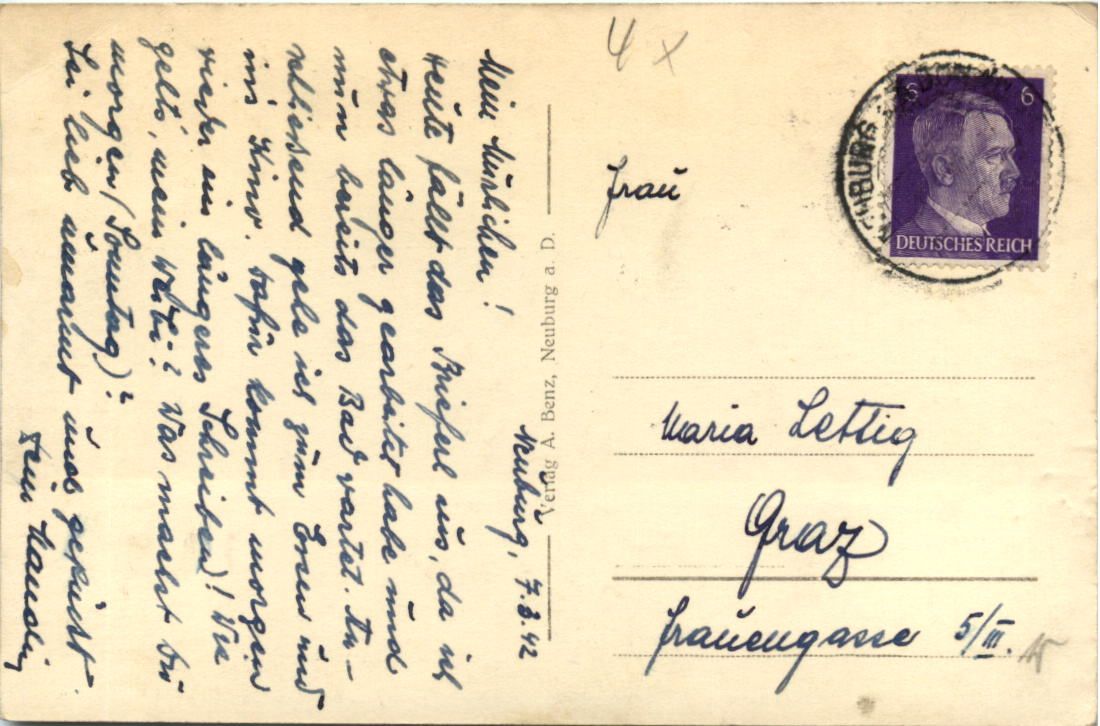 Neuburg, 7.3.42
Mein Murlichen!
Heute fällt das Brieferl aus, da ich
etwas länger gearbeitet habe und
nun bereits das Bad wartet. An-
schließend gehe ich zum Essen und
ins Kino. Dafür kommt morgen
wieder ein längeres Schreiben! Wie
geht's, mein Weibi? Was machst Du
morgen (Sonntag)?
Sei lieb umarmt und geküsst
Dein
Verlag A. Benz, Neuburg a. D.
4 x
6 6
DEUTSCHES REICH
NEUBURG
Frau
Maria Lettig
Graz
Frauengasse 5/III.